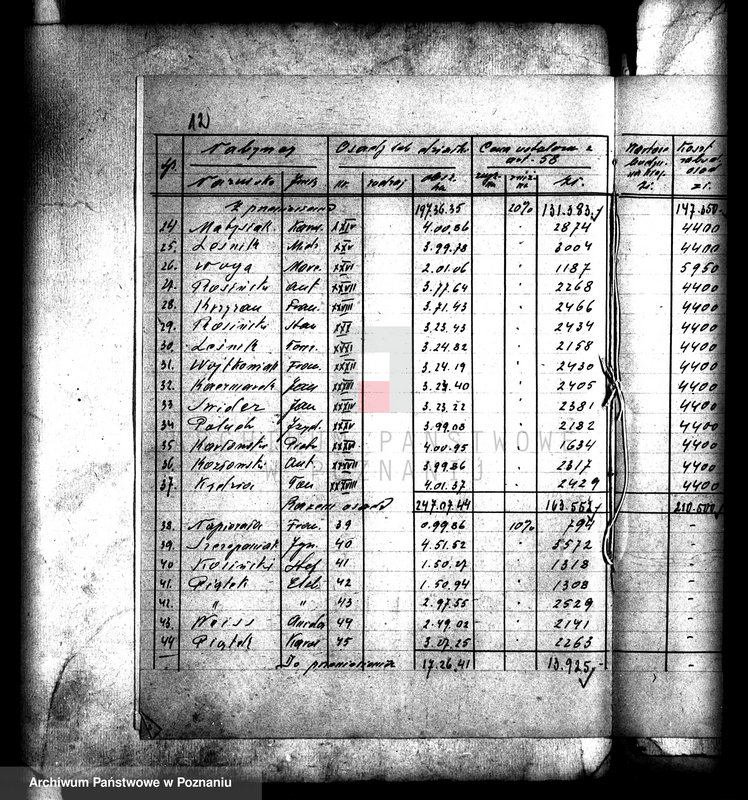 12)
Lp. Nabywca Osady lub działki Cena ustalona z art. 58 Wartość Koszt
Nazwisko Imię nr. rodzaj ha zł. zł. zł.
Z przeniesienia 197.36.35 20% 131.383,- 147.350
24 Matysiak XXIV 4.00.86 " 2874 4400
25. Leśnik XXV 3.99.78 " 3004 4400
26. Woya XXVI 2.01.06 " 1187 5950
27. Rosiński Ant XXVII 3.77.64 " 2268 4400
28. Fran. XXVIII 3.71.43 " 2466 4400
29. Rosiński Stan XXX 3.23.43 " 2434 4400
30. Leśnik Tom. XXXI 3.24.32 " 2158 4400
31. Wojtkowiak Fran. XXXII 3.24.19 " 2430 4400
32. Kaczmarek Jan XXXIII 3.24.40 " 2405 4400
33 Swider Jan XXXIV 3.23.22 " 2381 4400
34 Paluch XXXV 3.99.08 " 2182 4400
35 Piotr XXXVI 4.00.95 " 1634 4400
36. Ant. XXXVII 3.99.86 " 2317 4400
37. Kędzia Jan XXXVIII 4.01.37 " 2429 4400
Razem osady 247.07.44 163.552,- 210.500,-
38. Napierała Fran. 39 0.99.86 10% 794 -
39. Szczepaniak Ign. 40 4.51.52 " 3572 -
40 Kosiński Stef 41 1.50.27 " 1318 -
41. Piątek 42 1.50.94 " 1308 -
42. " " 43 2.97.55 " 2529 -
43. Weiss 44 2.49.02 " 2141 -
44 Piątek Karol 45 3.27.25 " 2263 -
Do przeniesienia 17.26.41 13.925,- -
PAŃSTWOWE
W POZNANIU
Archiwum Państwowe w Poznaniu